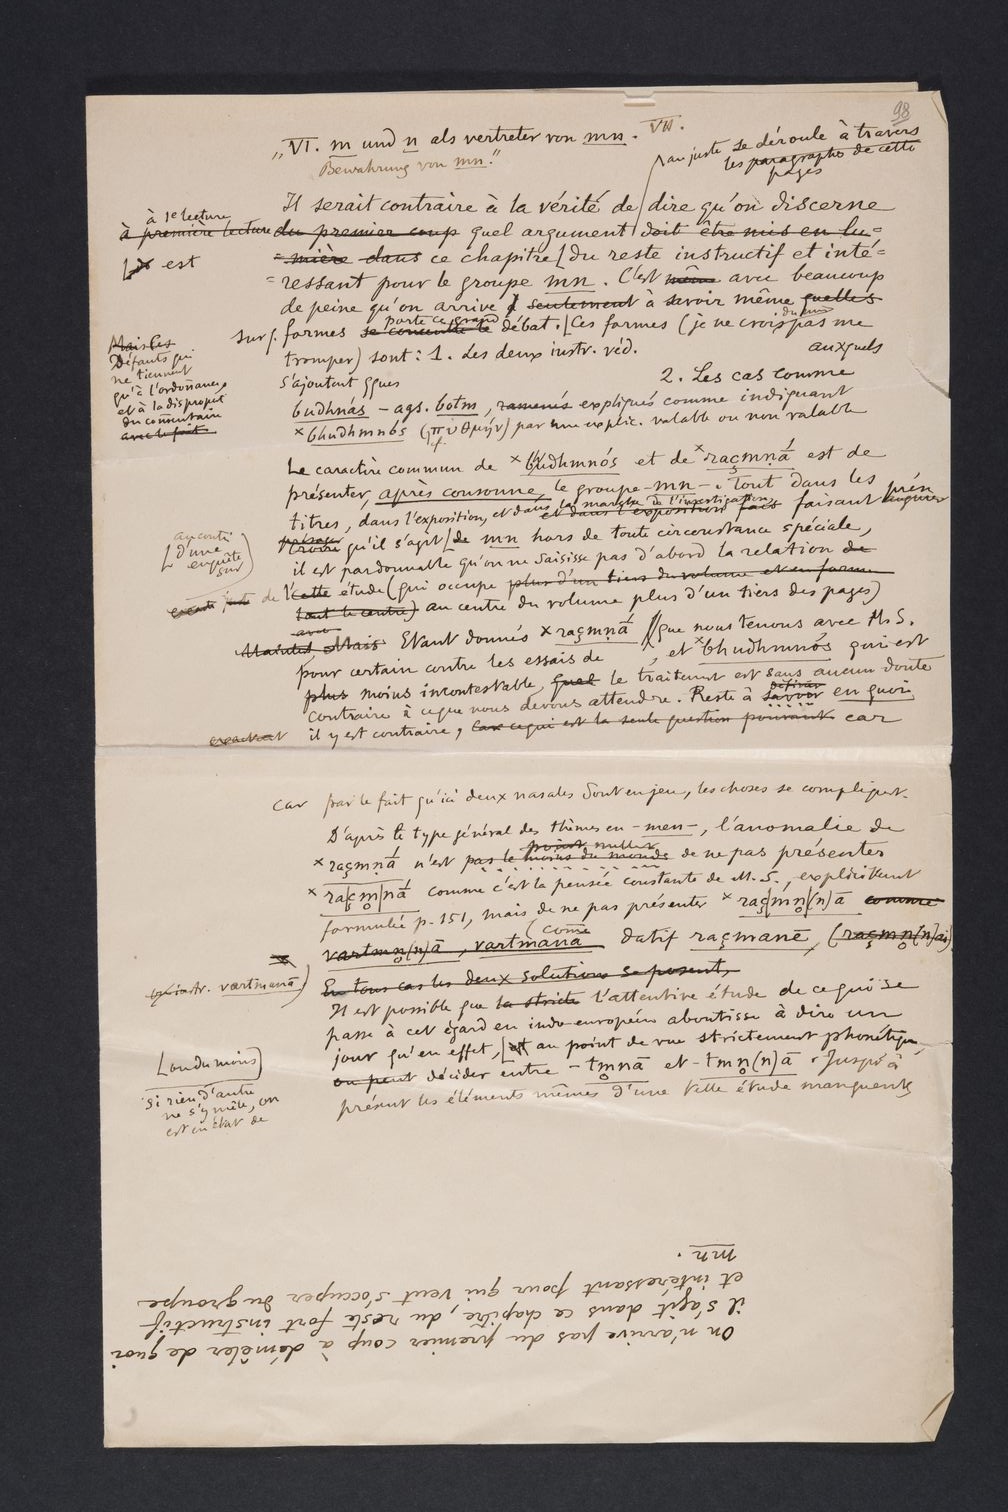 98
„VI. m und n als vertreter von mn. VII.
Bewahrung von mn."
au juste se déroule à travers
les paragraphes de cette
pages
Il serait contraire à la vérité de dire qu'on discerne
à 1e lecture
à première lecture du premier coup quel argument doit être mis en lu=
est
=mière dans ce chapitre du reste instructif et inté=
=ressant pour le groupe mn. C'est même avec beaucoup
de peine qu'on arrive seulement à savoir même quelles
sur formes se concentre le débat. Ces formes (je ne crois pas me
porte ce grand
du moins
auxquels
tromper) sont: 1. Les deux instr. véd.
Mais Ces
Défauts qui
ne tiennent
qu'à l'ordonnance
et à la disproport
du commentaire
avec le fait
2. Les cas comme
s'ajoutent qques
budhnás – ags. botm, ramenés expliqués comme indiquant
×bhudhmnós (πυθμήν) par une explic. valable ou non valable
Le caractère commun de ×bhudhmnós et de ×raçmṇā́ est de
présenter, après consonne, le groupe -mn-. Tout dans les
titres, dans l'exposition, et dans les marches de l'investigation,
et dans l'exposition fais faisant
présager
croire qu'il s'agit de mn hors de toute circonstance spéciale,
au contr.
d'une
enquête
sur
il est pardonnable qu'on ne saisisse pas d'abord la relation de
de l'cette étude (qui occupe plus d'un tiers du volume et en forme
tout le centre) au centre du volume plus d'un tiers des pages)
avec
Mais Etant donnés ×raçmṇā́ que nous tenons avec M. S.
pour certain contre les essais de , et ×bhudhmnós qui est
plus moins incontestable, quel le traitement est sans aucun doute
contraire à ce que nous devons attendre. Reste à savoir en quoi
définir
il y est contraire, car ce qui est la seule question pouvant car
car par le fait qu'ici deux nasales sont en jeu, les choses se compliquent.
D'après le type général des thèmes en -men-, l'anomalie de
point nullem
×raçmṇā́ n'est pas le moins du monde de ne pas présenter
×ra|çm̥|nā́ comme c'est la pensée constante de M. S., explicitement
formulée p. 151, mais de ne pas présenter ×raç|mn̥|(n)ā comme
(come
vartmn̥(n)ā, vartmanā datif raçmanē, (raçmn̥(n)ai)
instr. vartmanā)
En tous cas les deux solutions se posent,
Il est possible que la stricte l'attentive étude de ce qui se
passe à cet égard en indo-européen aboutisse à dire un
jour qu'en effet, et au point de vue strictement phonétique,
ou du moins
si rien d'autre
ne s'y mêle, on
est en état de
on peut décider entre -tm̥nā et -tmn̥(n)ā. Jusqu'à
présent les éléments mêmes d'une telle étude manquent
On n'arrive pas du premier coup à démêler de quoi
il s'agit dans ce chapitre, du reste fort instructif
et intéressant pour qui veut s'occuper du groupe
mn.